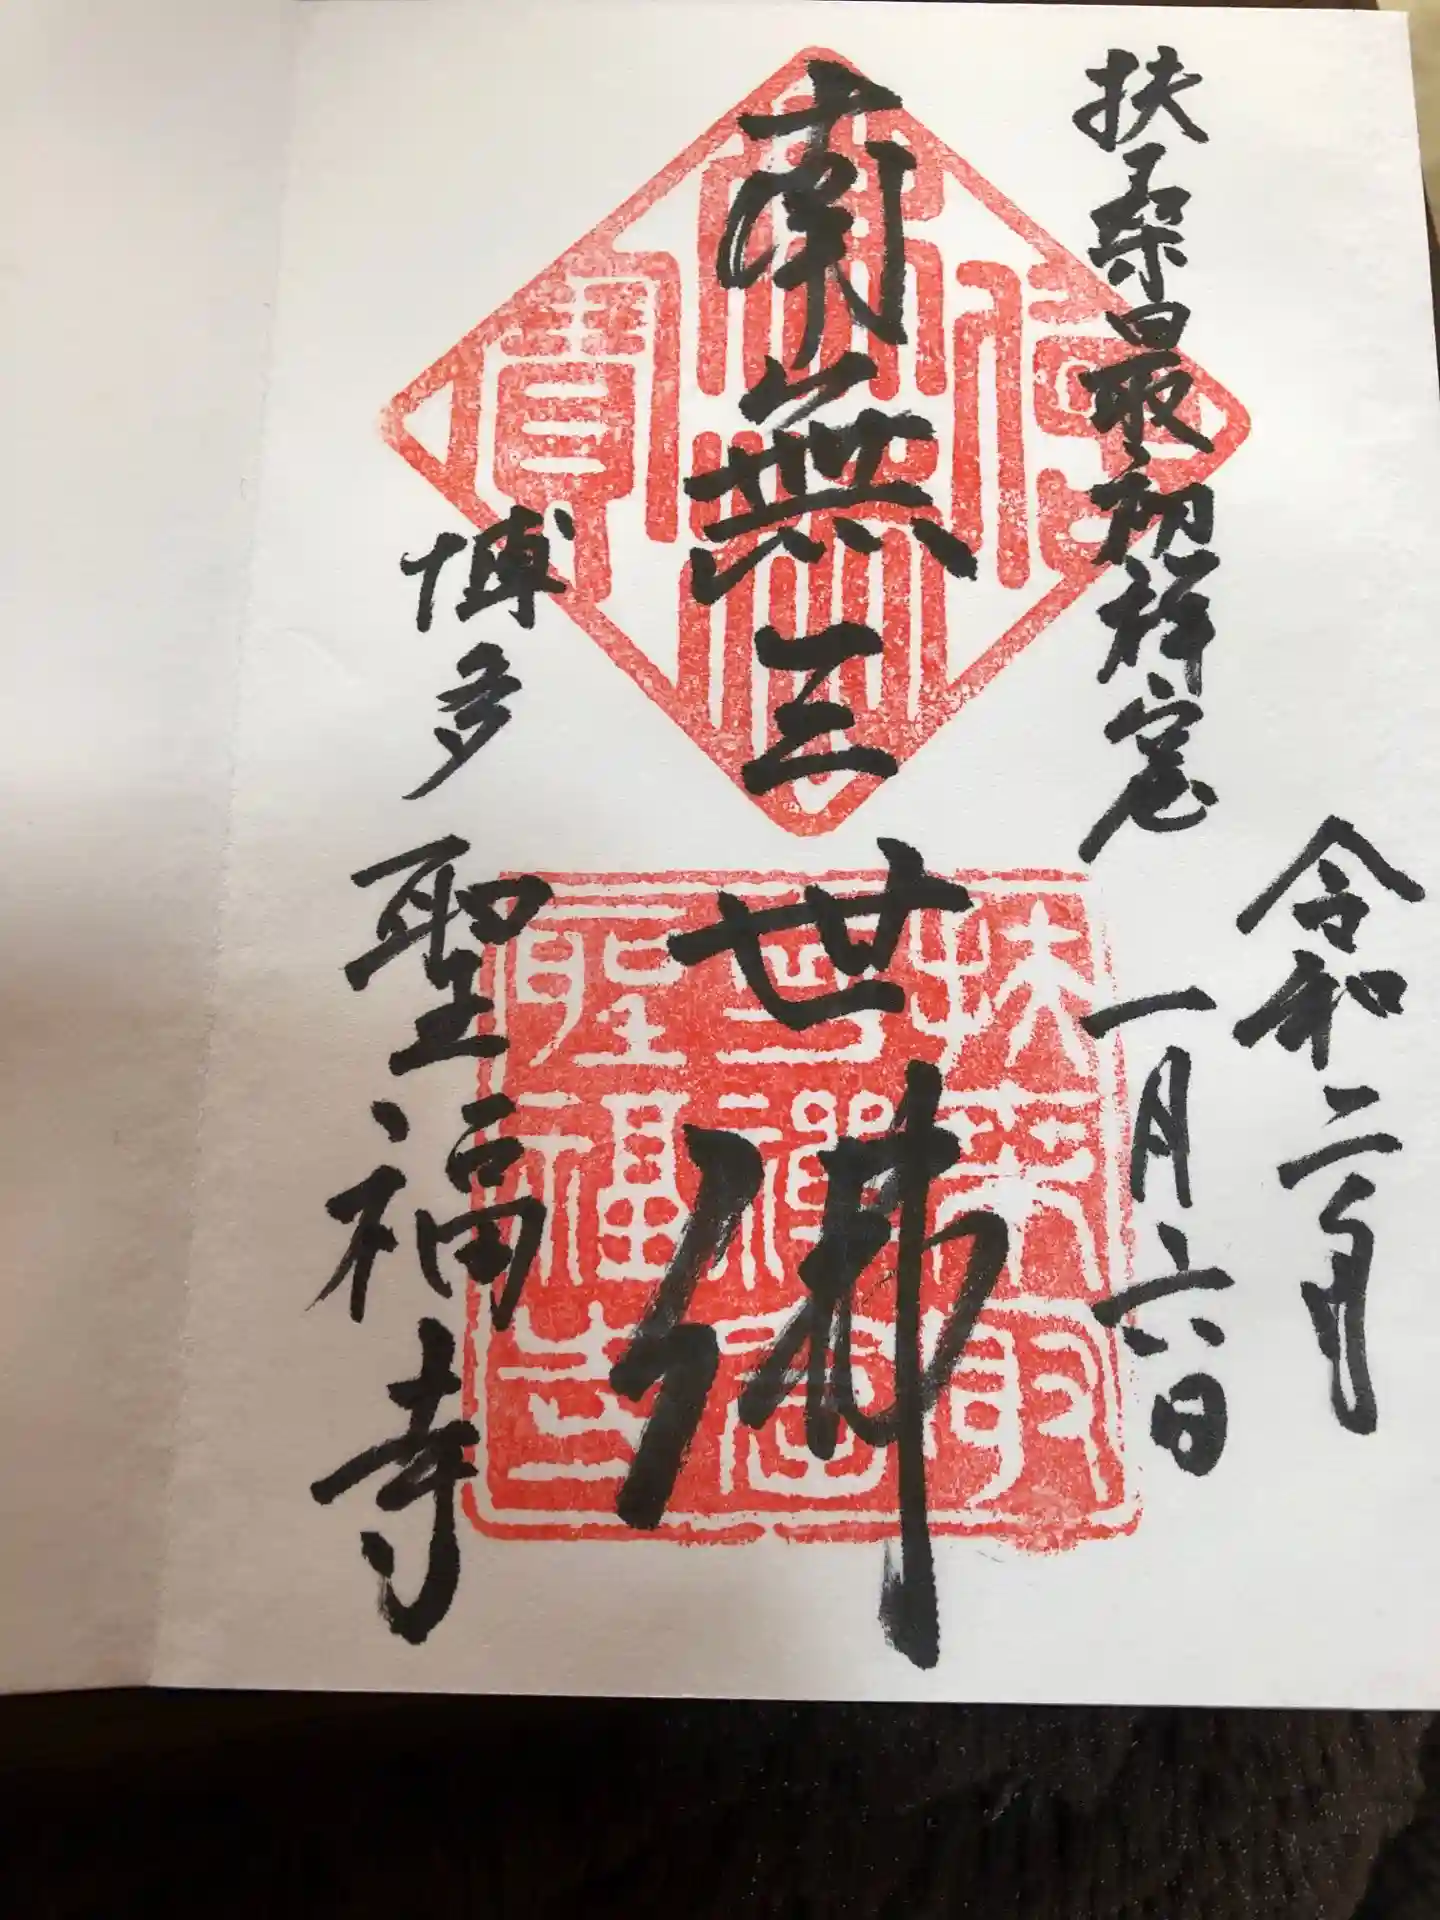 令和二年
一月六日
扶桑最初禅窟
南無三世佛
博多 聖福寺
扶桑最
初禪窟
聖福寺